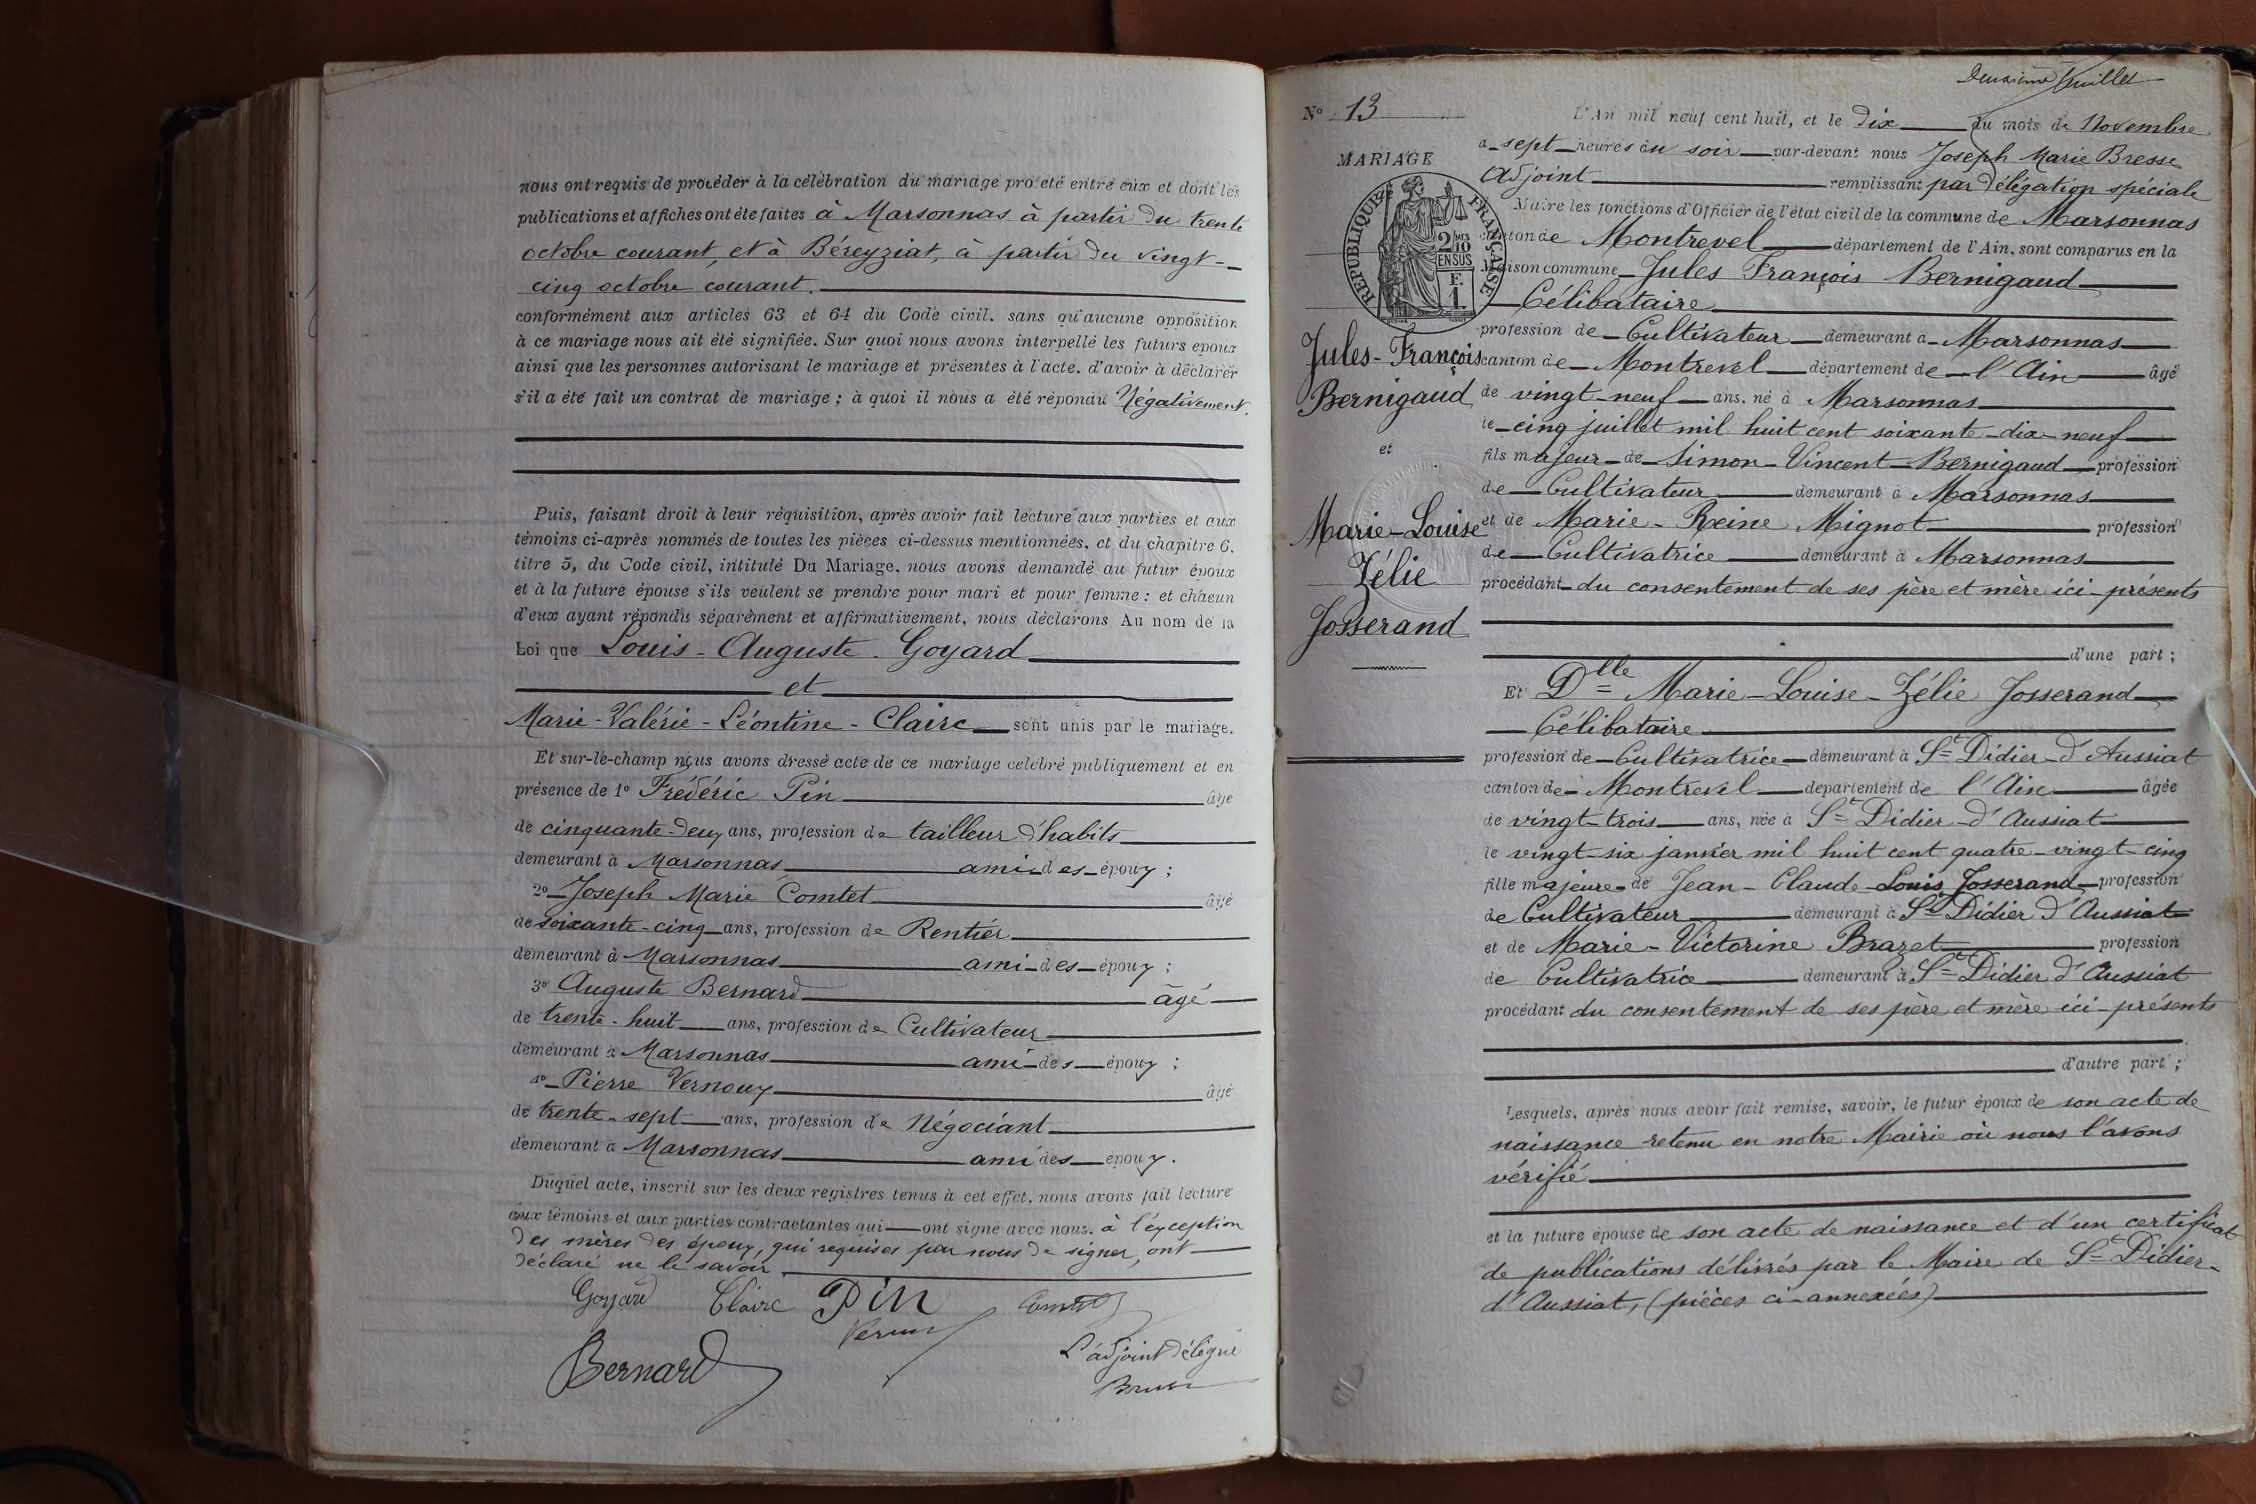 nous ont requis de procéder à la célébration du mariage projeté entre eux et dont les
publications et affiches ont été faites à Marsonnas à partir du trente
octobre courant, et à Béreyziat, à partir du vingt-
cinq octobre courant.
conformément aux articles 63 et 64 du Code civil, sans qu'aucune opposition
à ce mariage nous ait été signifiée. Sur quoi nous avons interpellé les futurs époux
ainsi que les personnes autorisant le mariage et présentes à l'acte, d'avoir à déclarer
s'il a été fait un contrat de mariage ; à quoi il nous a été répondu Négativement.
Puis, faisant droit à leur réquisition, après avoir fait lecture aux parties et aux
témoins ci-après nommés de toutes les pièces ci-dessus mentionnées, et du chapitre 6,
titre 5, du Code civil, intitulé Du Mariage, nous avons demandé au futur époux
et à la future épouse s'ils veulent se prendre pour mari et pour femme ; et chacun
d'eux ayant répondu séparément et affirmativement, nous déclarons Au nom de la
Loi que Louis-Auguste Goyard
et
Marie-Valérie-Léontine-Claire sont unis par le mariage.
Et sur-le-champ nous avons dressé acte de ce mariage célébré publiquement et en
présence de 1° Frédéric Pin âgé
de cinquante-deux ans, profession de tailleur d'habits
demeurant à Marsonnas ami des époux ;
2° Joseph Marie Comtet âgé
de soixante-cinq ans, profession de Rentier
demeurant à Marsonnas ami des époux ;
3° Auguste Bernard âgé
de trente-huit ans, profession de Cultivateur
demeurant à Marsonnas ami des époux ;
4° Pierre Vernoux âgé
de trente-sept ans, profession de Négociant
demeurant à Marsonnas ami des époux.
Duquel acte, inscrit sur les deux registres tenus à cet effet, nous avons fait lecture
aux témoins et aux parties contractantes qui ont signé avec nous, à l'exception
des mères des époux, qui requises par nous de signer, ont
déclaré ne le savoir
Goyard Claire Pin Comtet
Vernoux
Bernard
L'adjoint délégué
Bresse
Deuxième feuillet
N° 13
MARIAGE
RÉPUBLIQUE FRANÇAISE
2/10
EN SUS
F.
1.
Jules-François
Bernigaud
et
Marie-Louise
Zélie
Josserand
L'An mil neuf cent huit, et le dix du mois de Novembre
à sept heures du soir par-devant nous Joseph Marie Bresse
Adjoint remplissant par délégation spéciale
Maire les fonctions d'Officier de l'état civil de la commune de Marsonnas
canton de Montrevel département de l'Ain, sont comparus en la
Maison commune Jules François Bernigaud
Célibataire
profession de Cultivateur demeurant à Marsonnas
canton de Montrevel département de l'Ain âgé
de vingt-neuf ans, né à Marsonnas
le cinq juillet mil huit cent soixante-dix-neuf
fils majeur de Simon-Vincent Bernigaud profession
de Cultivateur demeurant à Marsonnas
et de Marie-Reine Mignot profession
de Cultivatrice demeurant à Marsonnas
procédant du consentement de ses père et mère ici présents
d'une part ;
Et Dlle Marie-Louise-Zélie Josserand
Célibataire
profession de Cultivatrice demeurant à St Didier d'Aussiat
canton de Montrevel département de l'Ain âgée
de vingt-trois ans, née à St Didier-d'Aussiat
le vingt-six janvier mil huit cent quatre-vingt-cinq
fille majeure de Jean-Claude-Louis Josserand profession
de Cultivateur demeurant à St Didier d'Aussiat
et de Marie-Victorine Brazet profession
de Cultivatrice demeurant à St Didier d'Aussiat
procédant du consentement de ses père et mère ici présents
d'autre part ;
Lesquels, après nous avoir fait remise, savoir, le futur époux de son acte de
naissance retenu en notre Mairie où nous l'avons
vérifié
et la future épouse de son acte de naissance et d'un certificat
de publications délivrés par le Maire de St Didier-
d'Aussiat, (pièces ci-annexées)